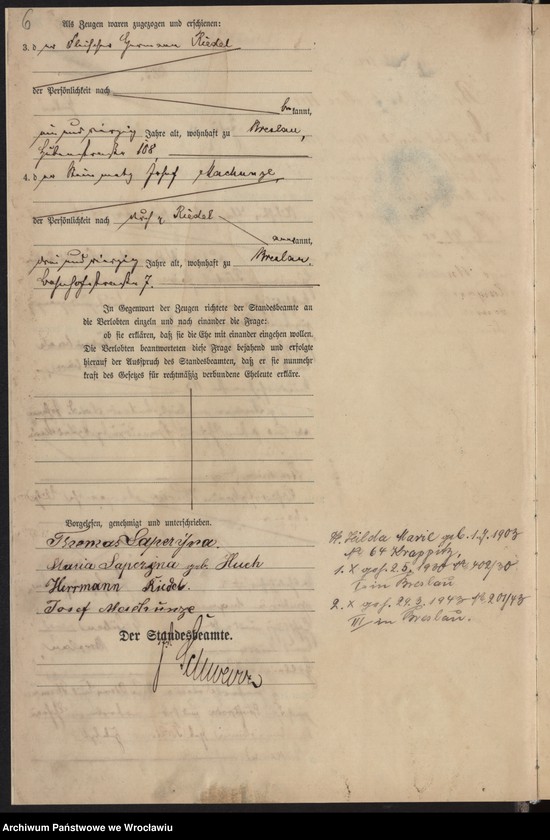 6
Als Zeugen waren zugezogen und erschienen:
3. der Fleischer Hermann Riedel
der Persönlichkeit nach
bekannt,
ein und vierzig Jahre alt, wohnhaft zu Breslau,
108
4. der Steinmetz Josef Machunze
der Persönlichkeit nach durch p. Riedel
anerkannt,
drei und vierzig Jahre alt, wohnhaft zu Breslau,
Bahnhofstraße 7.
In Gegenwart der Zeugen richtete der Standesbeamte an
die Verlobten einzeln und nach einander die Frage:
ob sie erklären, daß sie die Ehe mit einander eingehen wollen.
Die Verlobten beantworteten diese Frage bejahend und erfolgte
hierauf der Ausspruch des Standesbeamten, daß er sie nunmehr
kraft des Gesetzes für rechtmäßig verbundene Eheleute erkläre.
Vorgelesen, genehmigt und unterschrieben.
Thomas Saperÿna.
Maria Saperÿna geb. Huch
Herrmann Riedel
Josef Machunze
Der Standesbeamte.
Hilda Marie geb. 1903
№ 64 Krappitz,
1. X ges. 2.5. 1930 № 402/30
I in Breslau
2. X ges. 1943 № 201/43
III in Breslau.
Archiwum Państwowe we Wrocławiu